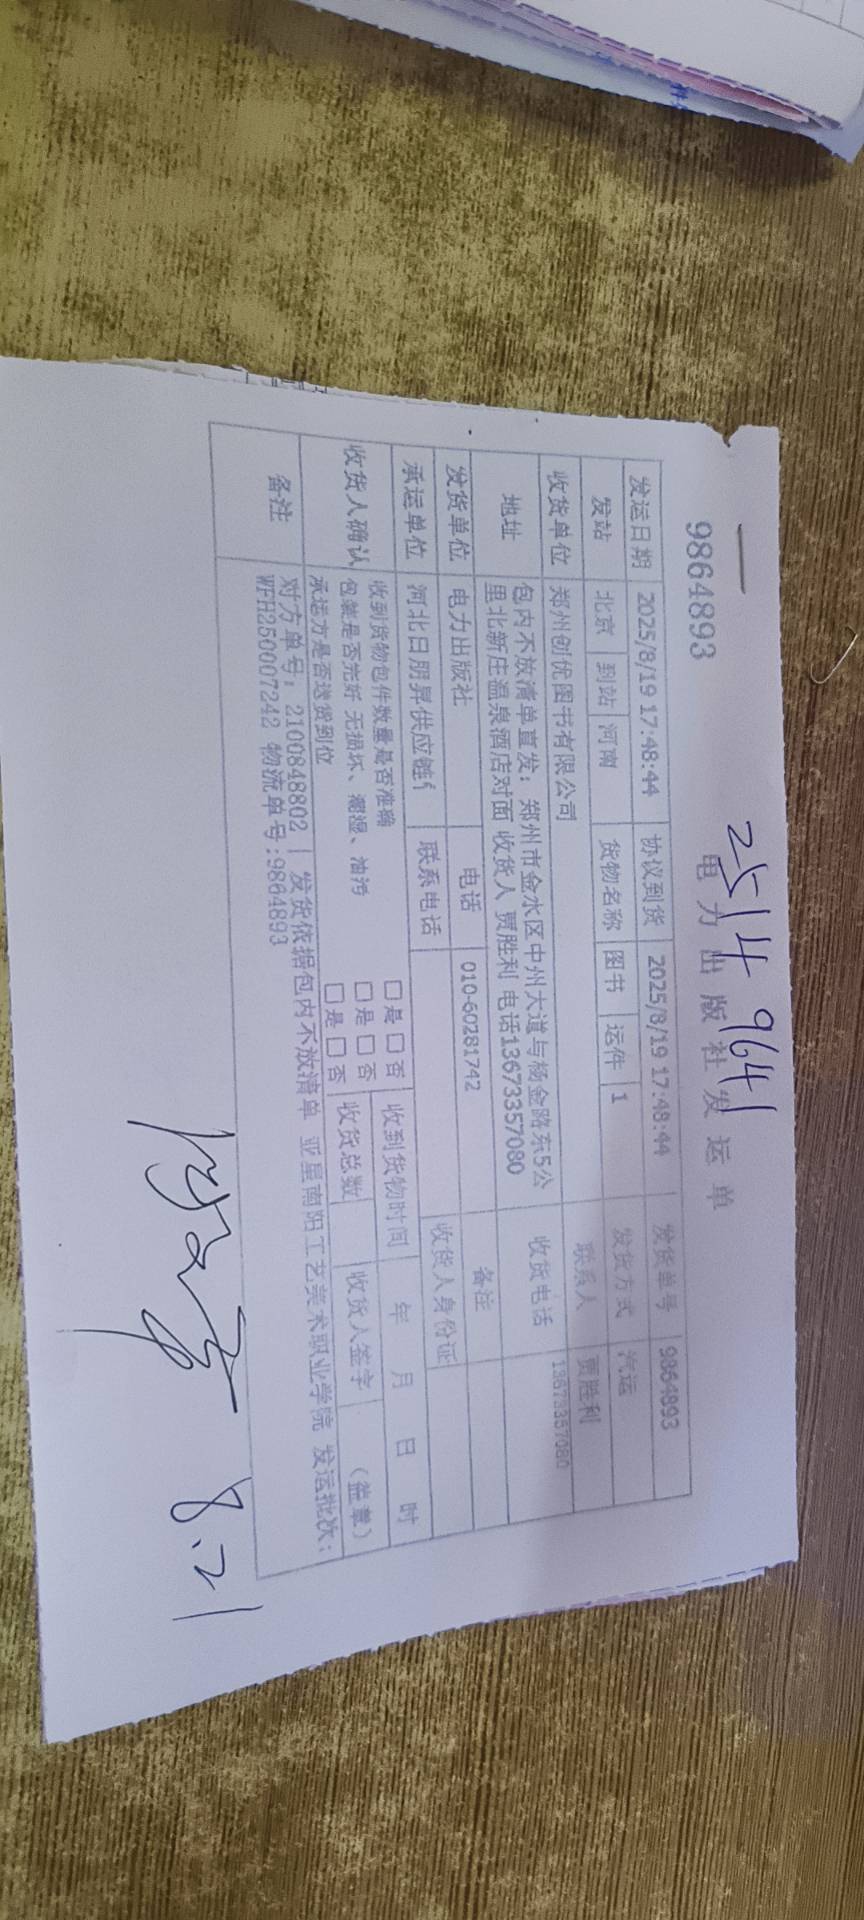 2514 9641
9864893
电力出版社发运单
发运日期 2025/8/19 17:48:44 协议到货 2025/8/19 17:48:44 发货单号 9864893
发站 北京 到站 河南 货物名称 图书 运件 1 发货方式 汽运
收货单位 郑州创优图书有限公司 联系人 贾胜利
地址 包内不放清单直发：郑州市金水区中州大道与杨金路东5公
里北新庄温泉酒店对面 收货人 贾胜利 电话13673357080 收货电话 13673357080
发货单位 电力出版社 电话 010-60281742 备注
承运单位 河北日朋昇供应链 联系电话 收货人身份证
收货人确认 收到货物包件数量是否准确 □是 □否 收到货物时间 年 月 日 时
包装是否完好 无损坏、潮湿、油污 □是 □否 收货总数 收货人签字 （盖章）
承运方是否送货到位 □是 □否
备注 对方单号：2100848802 | 发货依据包内不放清单 亚星南阳工艺美术职业学院 发运批次：
WFH250007242 物流单号:9864893
8.21